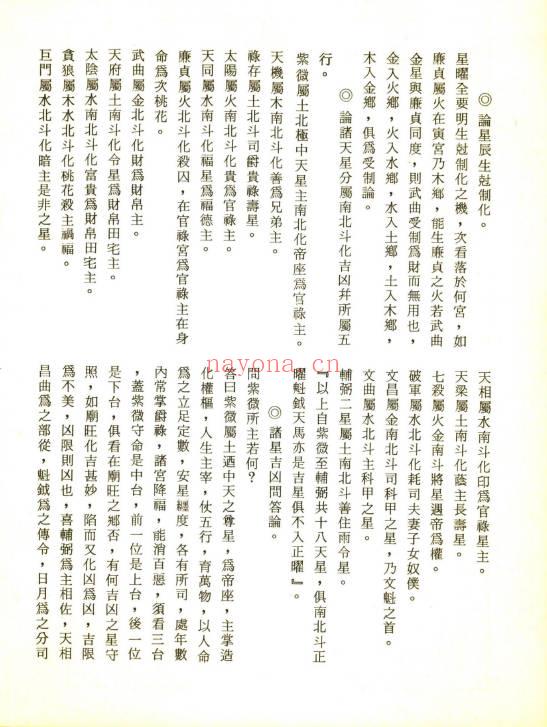 ◎ 論星辰生尅制化。
星曜全要明生尅制化之機，次看落於何宮，如
廉貞屬火在寅宮乃木鄉，能生廉貞之火若武曲
金星與廉貞同度，則武曲受制爲財而無用也，
金入火鄉，火入水鄉，水入土鄉，土入木鄉，
木入金鄉，俱爲受制論。
◎ 論諸天星分屬南北斗化吉凶幷所屬五
行。
紫微屬土北極中天星主南北化帝座爲官祿主。
天機屬木南斗化善爲兄弟主。
祿存屬土北斗司爵貴祿壽星。
太陽屬火南斗化貴爲官祿主。
天同屬水南斗化福星爲福德主。
廉貞屬火北斗化殺囚，在官祿宮爲官祿主在身
命爲次桃花。
武曲屬金北斗化財爲財帛主。
天府屬土南斗化令星爲財帛田宅主。
太陰屬水南斗化富貴爲財帛田宅主。
貪狼屬木水北斗化桃花殺主禍福。
巨門屬水北斗化暗主是非之星。
天相屬水南斗化印爲官祿星主。
天梁屬土南斗化蔭主長壽星。
七殺屬火金南斗將星遇帝爲權。
破軍屬水北斗化耗司夫妻子女奴僕。
文昌屬金南北斗司科甲之星，乃文魁之首。
文曲屬水北斗主科甲之星。
輔弼二星屬土南北斗善住雨令星。
『以上自紫微至輔弼共十八天星，俱南北斗正
曜魁鉞天馬亦是吉星俱不入正曜』。
◎ 諸星吉凶問答論。
問紫微所主若何？
答曰紫微屬土迺中天之尊星，爲帝座，主掌造
化權樞，人生主宰，伙五行，育萬物，以人命
爲之立足定數，安星纒度，各有所司，處年數
內常掌爵祿，諸宮降福，能消百慝，須看三台
，蓋紫微守命是中台，前一位是上台，後一位
是下台，俱看在廟旺之鄉否，有何吉凶之星守
照，如廟旺化吉甚妙，陷而又化凶爲凶，吉限
爲不美，凶限則凶也，喜輔弼爲主相佐，天相
昌曲爲之部從，魁鉞爲之傳令，日月爲之分司
nayona.cn